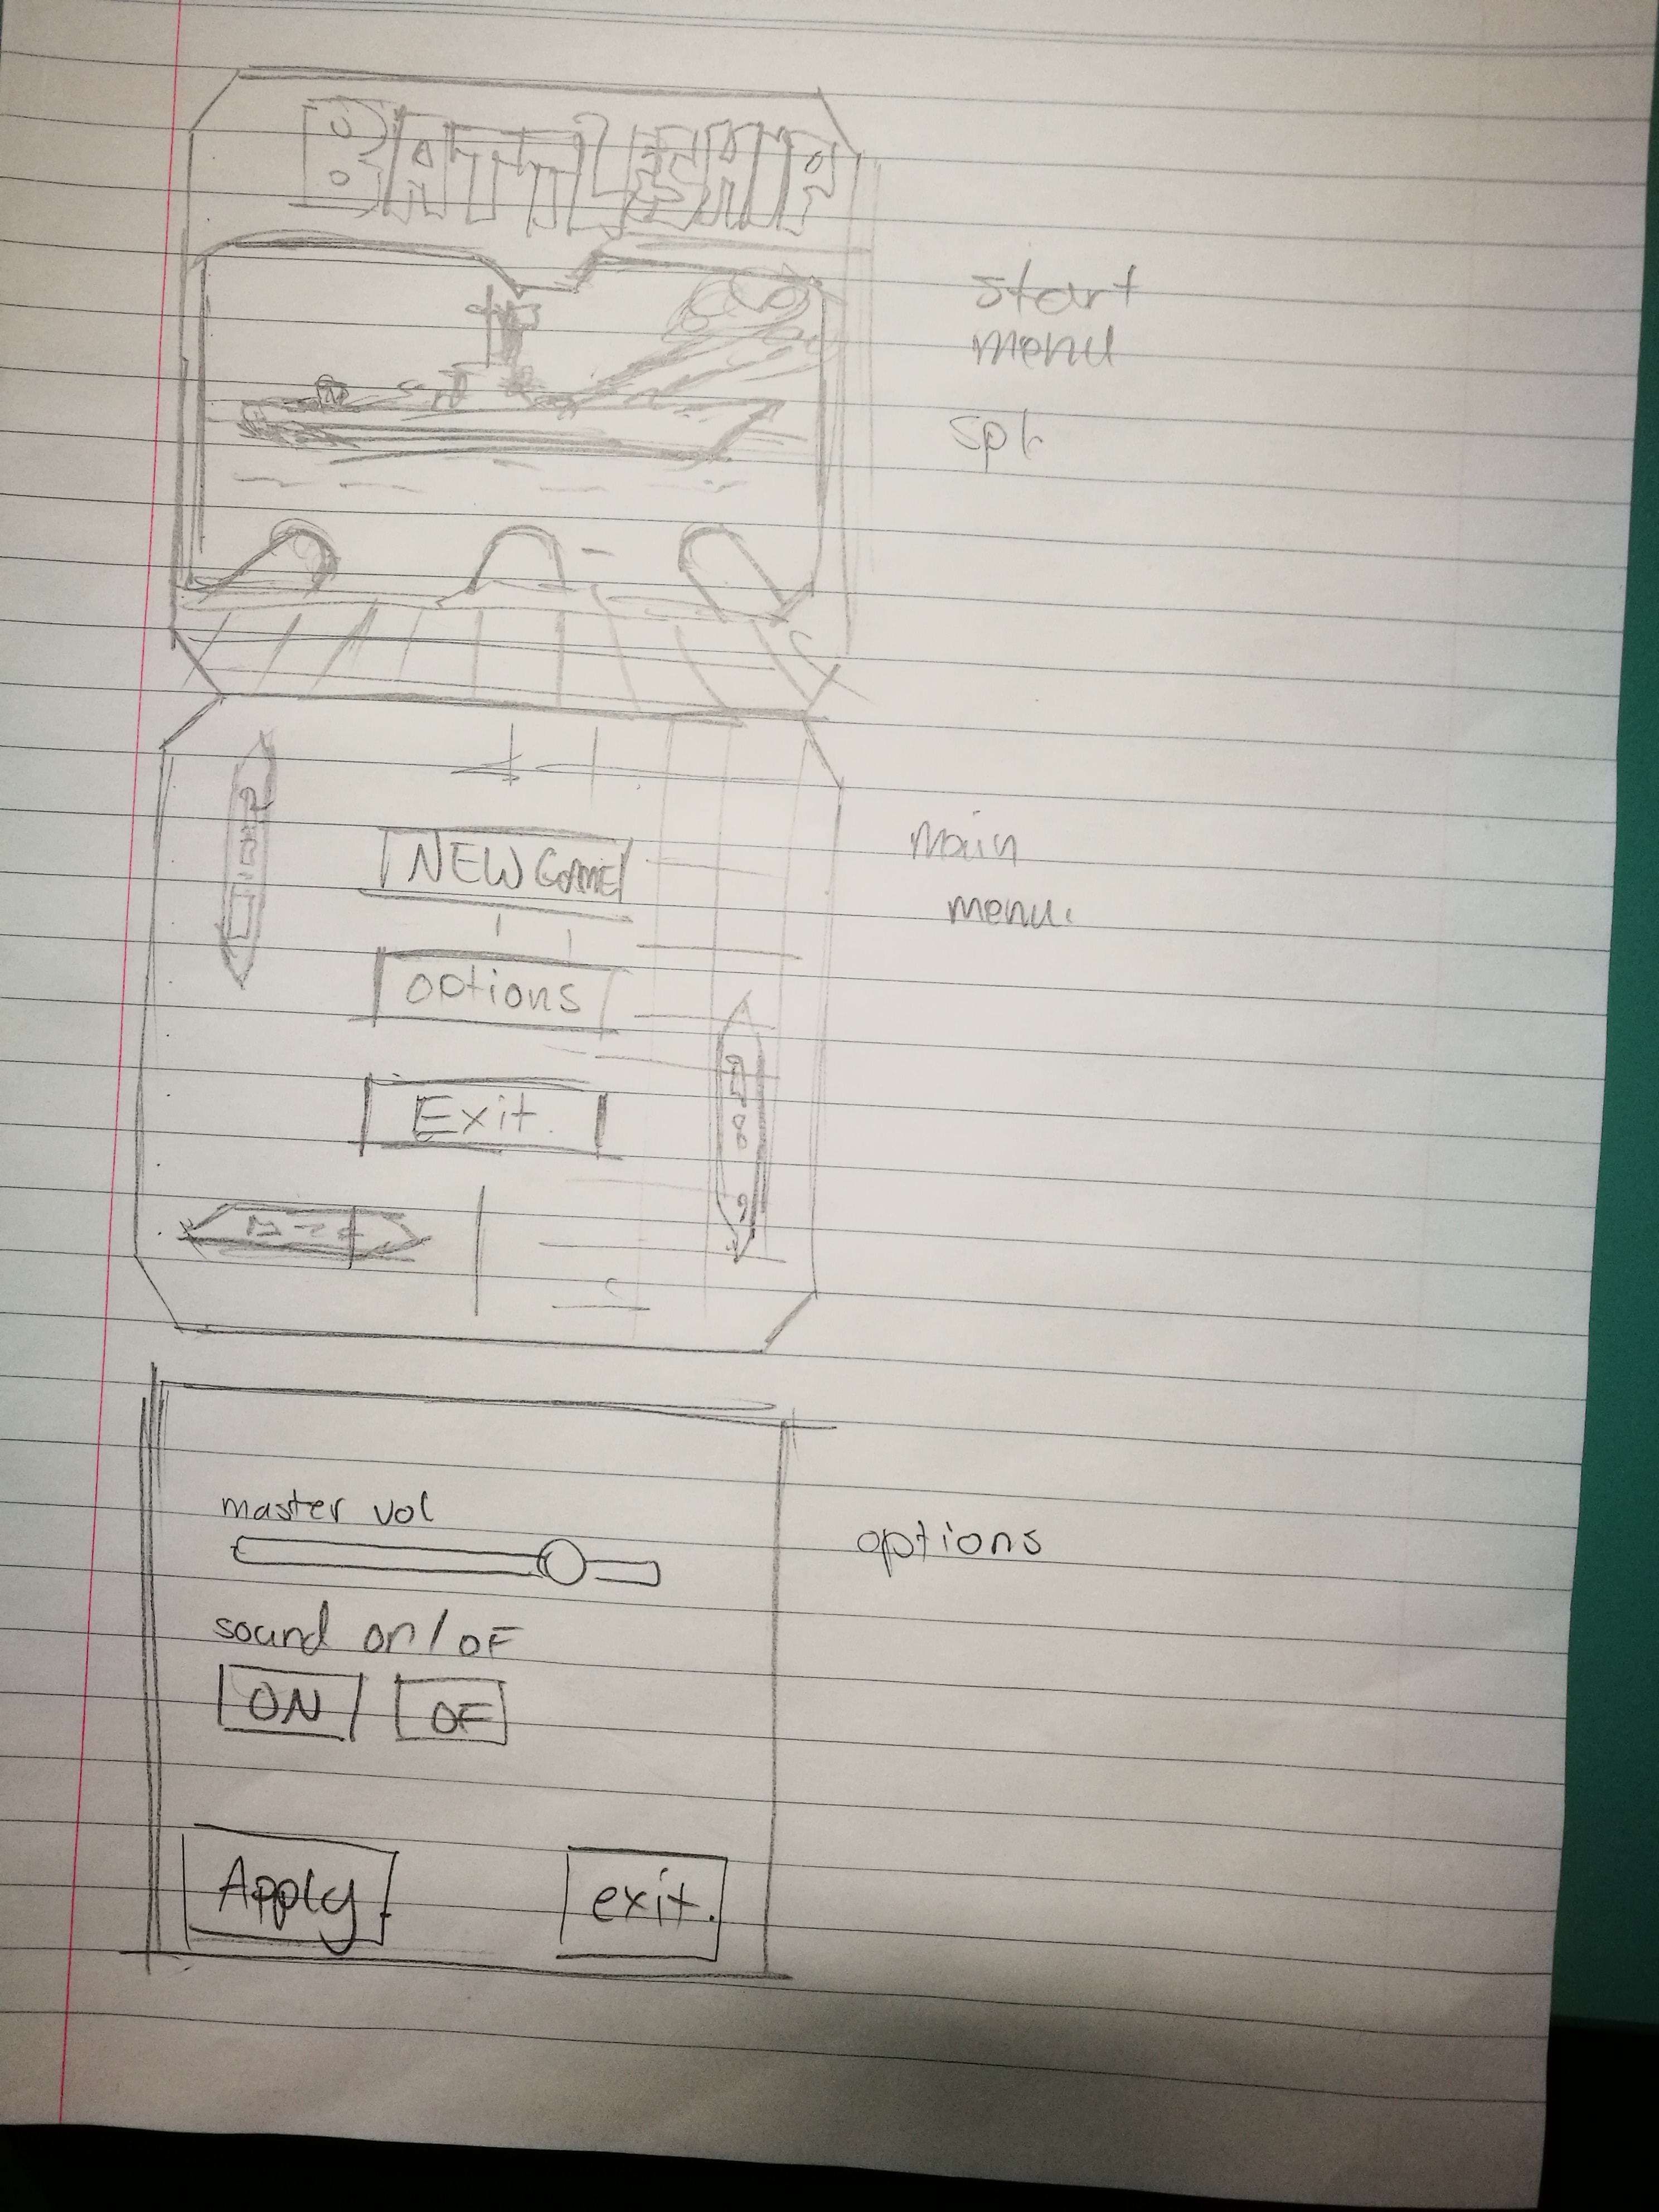 BATTLESHIP
start
menu
NEW GAME
options
Exit.
main
menu.
master vol
sound on/oF
ON
OF
Apply
exit.
options